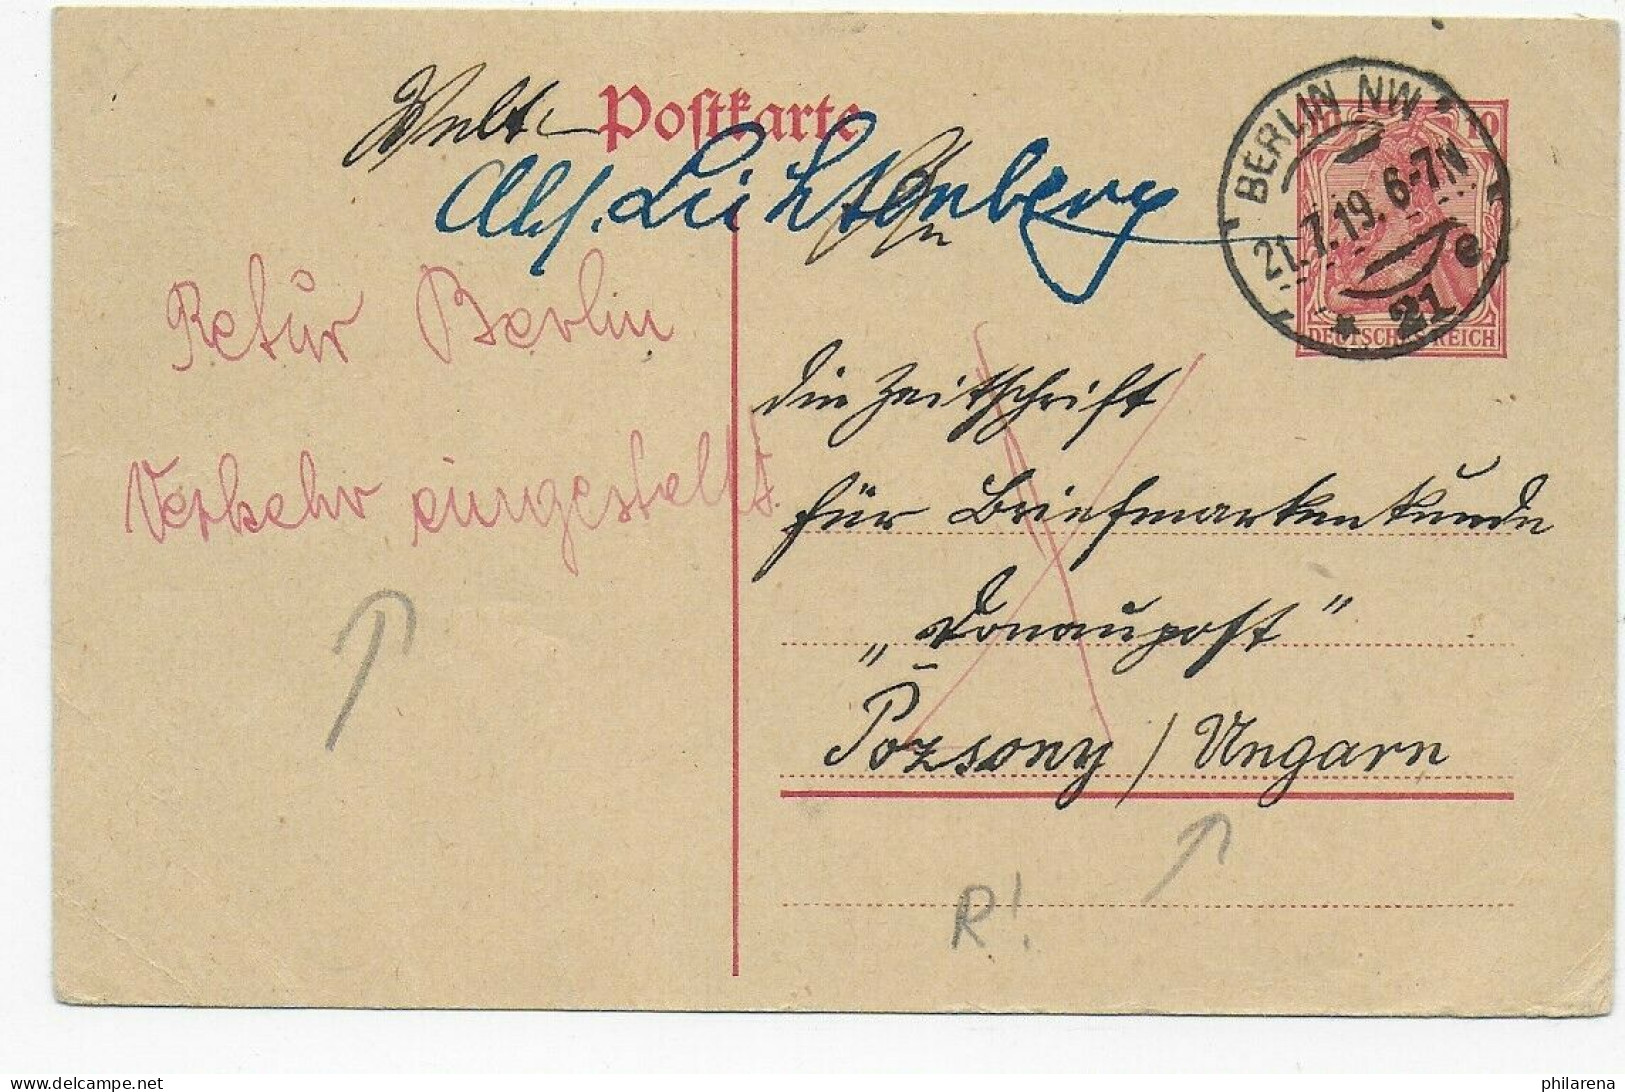 Welt-Postkarte
Abs. Lichtenberg
An
BERLIN NW
21.7.19. 6-7N
* 21 e
10
DEUTSCHES REICH
Retur Berlin
Verkehr eingestellt.
die Zeitschrift
für Briefmarkenkunde
„Donaupost"
Pozsony / Ungarn
R!
philarena